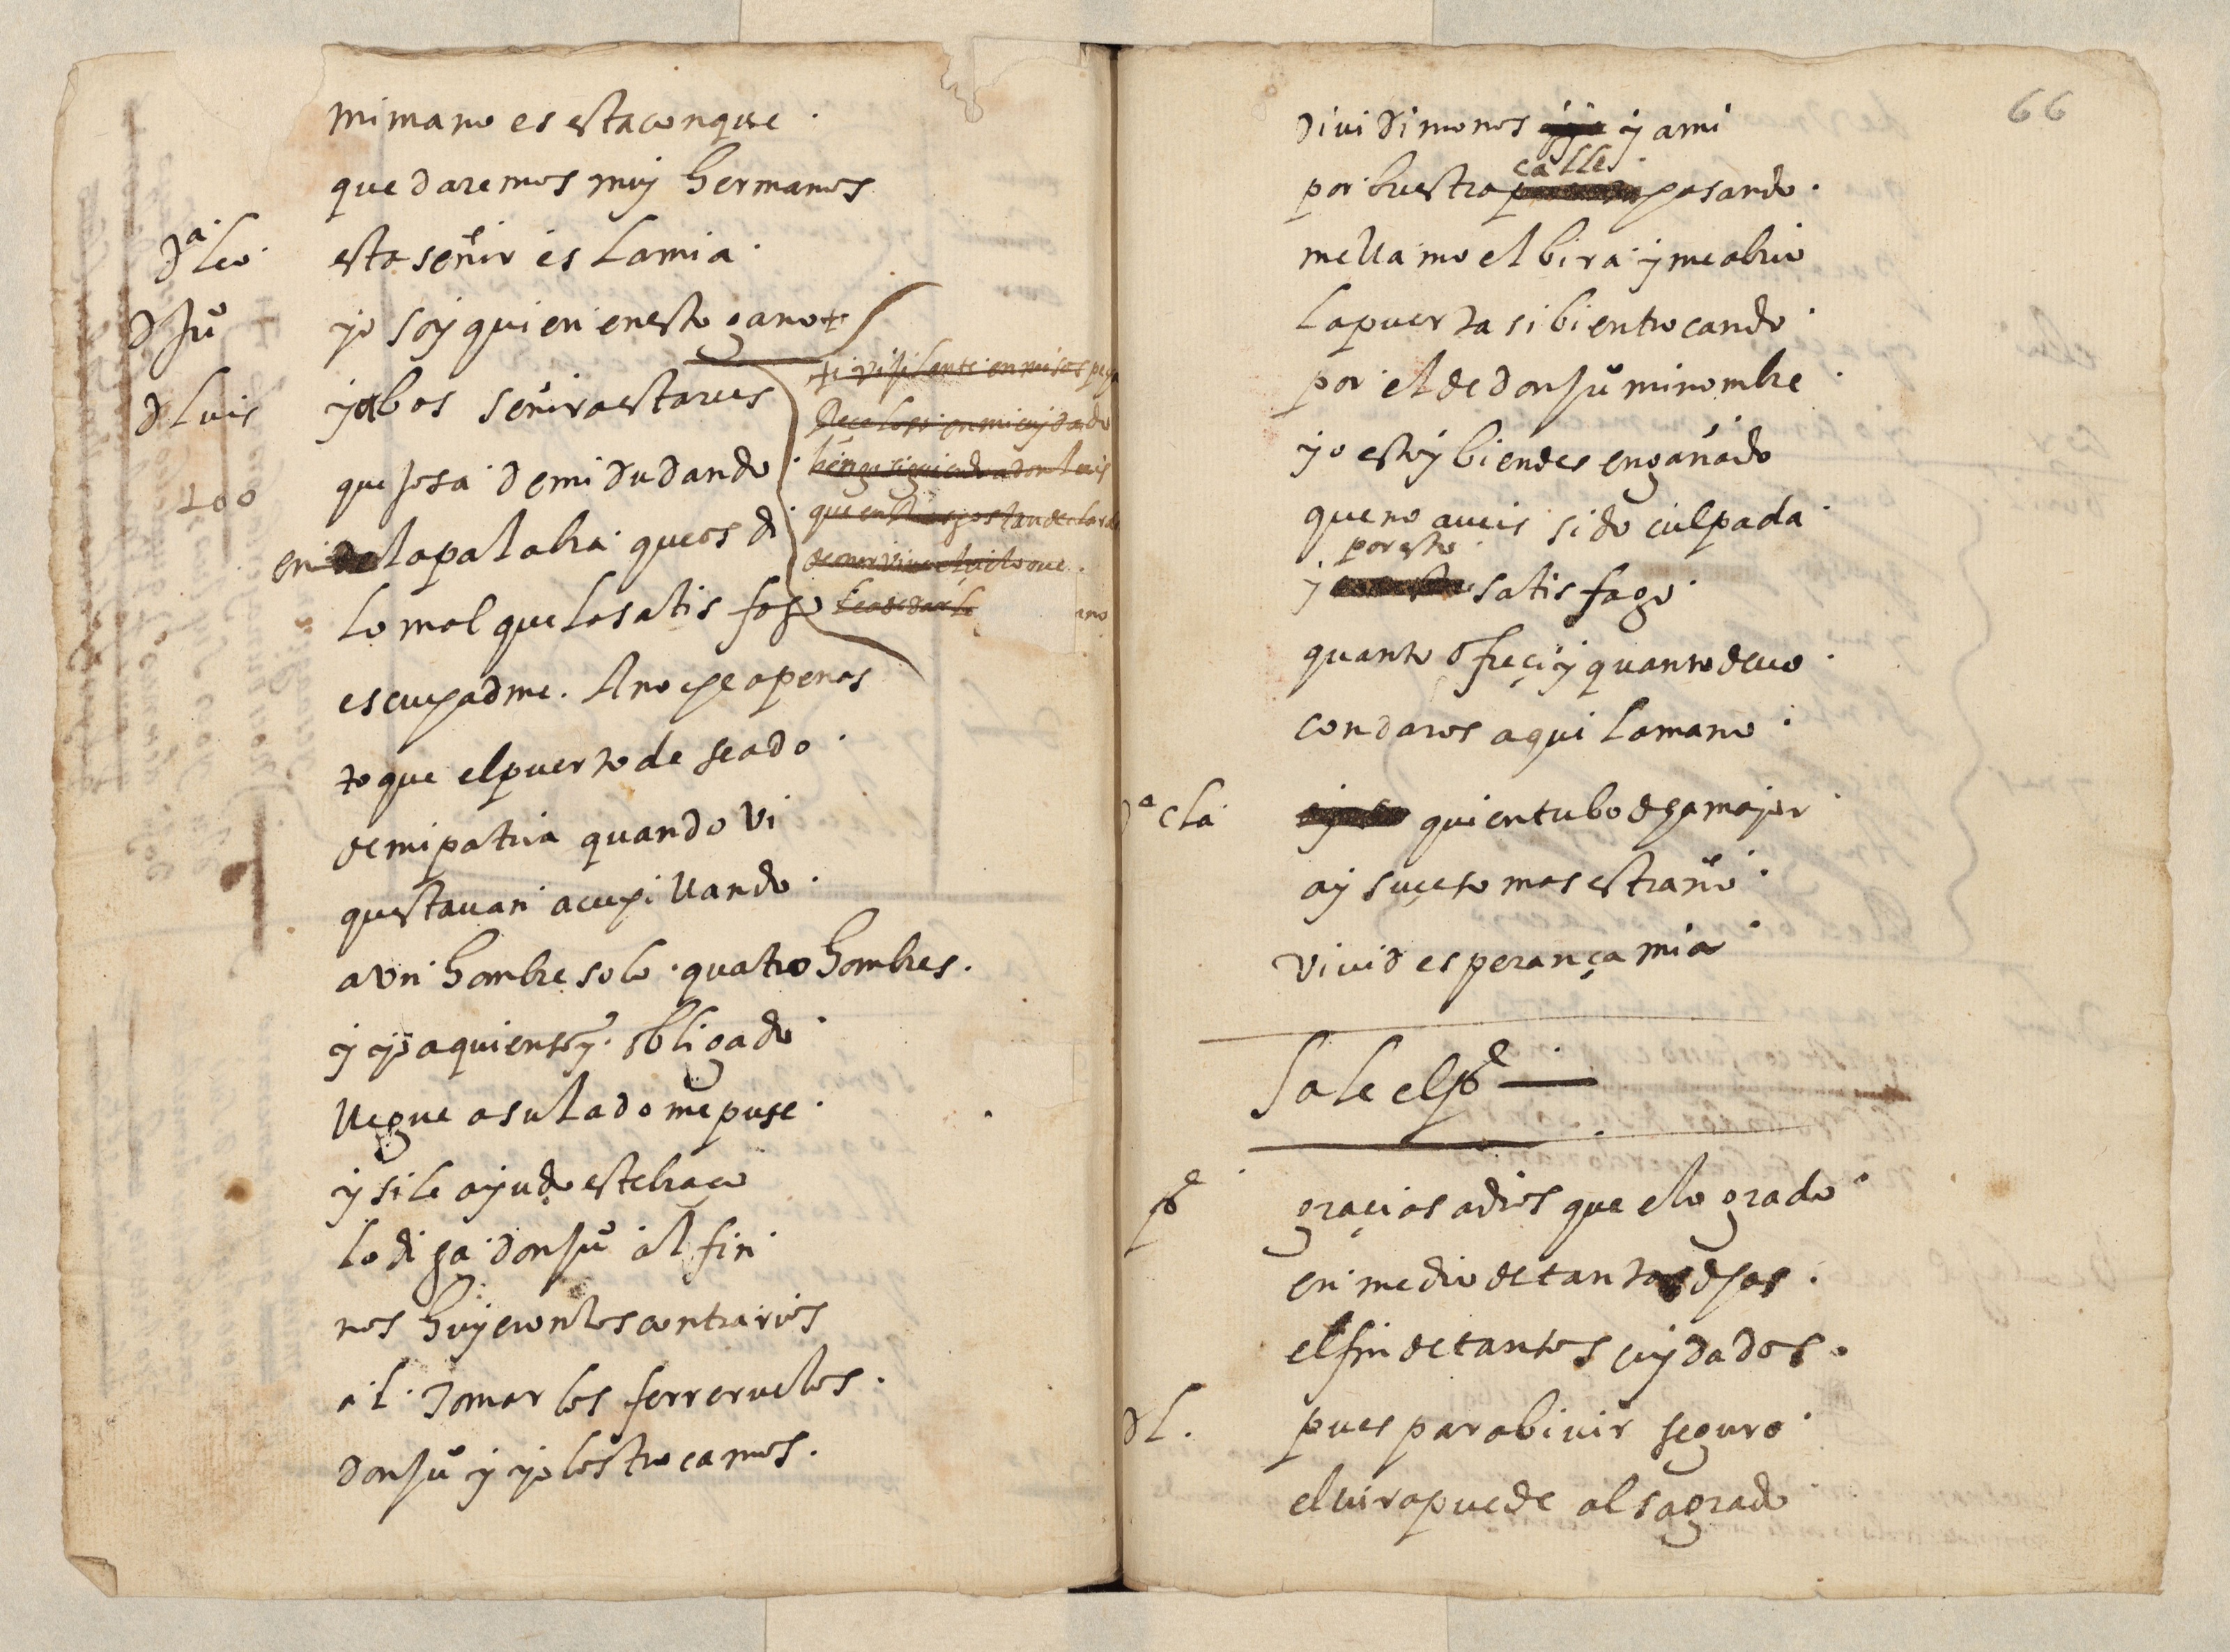 mi mano es esta con que
quedaremos muy hermanos
Dª Leo. esta señor es la mia
D Juº yo soy quien en esto gano +
D Luis y a bos señora estareis
quejosa de mi dudando
100
en la palabra que os di
lo mal que la satisfago
escuchadme. Anoche apenas
toque el puerto deseado
de mi patria quando vi
questauan acuchillando
a vn hombre solo quatro hombres.
y yo a quien soy obligado
llegue a su lado me puse
y si le ayudo este braço
lo diga don Juº al fin
nos huyeron los contrarios
al tomar los ferreruelos
don Juº y yo los trocamos.
+i vijilante en mis
Receloso en mi cuydado
bengo siguiendo a don luis
que en
66
diuidimonos y a mi
calle
por buestra pasando
me llamo elbira y me abrio
la puerta si bien trocando
por el de don Juº mi nombre
yo estoy bien desengañado
que no aueis sido culpada
por esto
y satisfago
quanto ofreçi y quanto deuo
con daros aqui la mano
Dª cla quien tubo dicha mayor
ay suçeso mas estraño
viuid esperança mia
Sale el pº
pº graçias a dios que e logrado
en medio de tantas dichas
el fin de tantos cuydados.
D L. pues para biuir seguro
eluira puede al sagrado